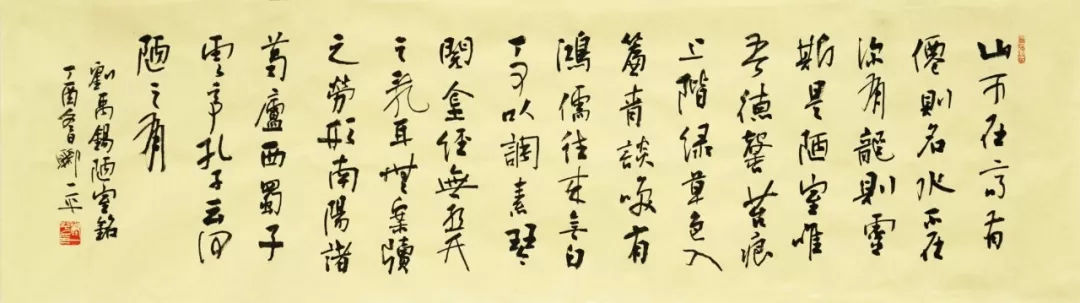 山不在高有
僊則名水不在
深有龍則靈
斯是陋室唯
吾德馨苔痕
上階緑草色入
簾青談咲有
鴻儒往来无白
丁可以調素琴
閱金經無丝竹
之亂耳無案牘
之勞形南陽諸
葛廬西蜀子
雲亭孔子云何
陋之有
劉禹錫陋室銘
丁酉春